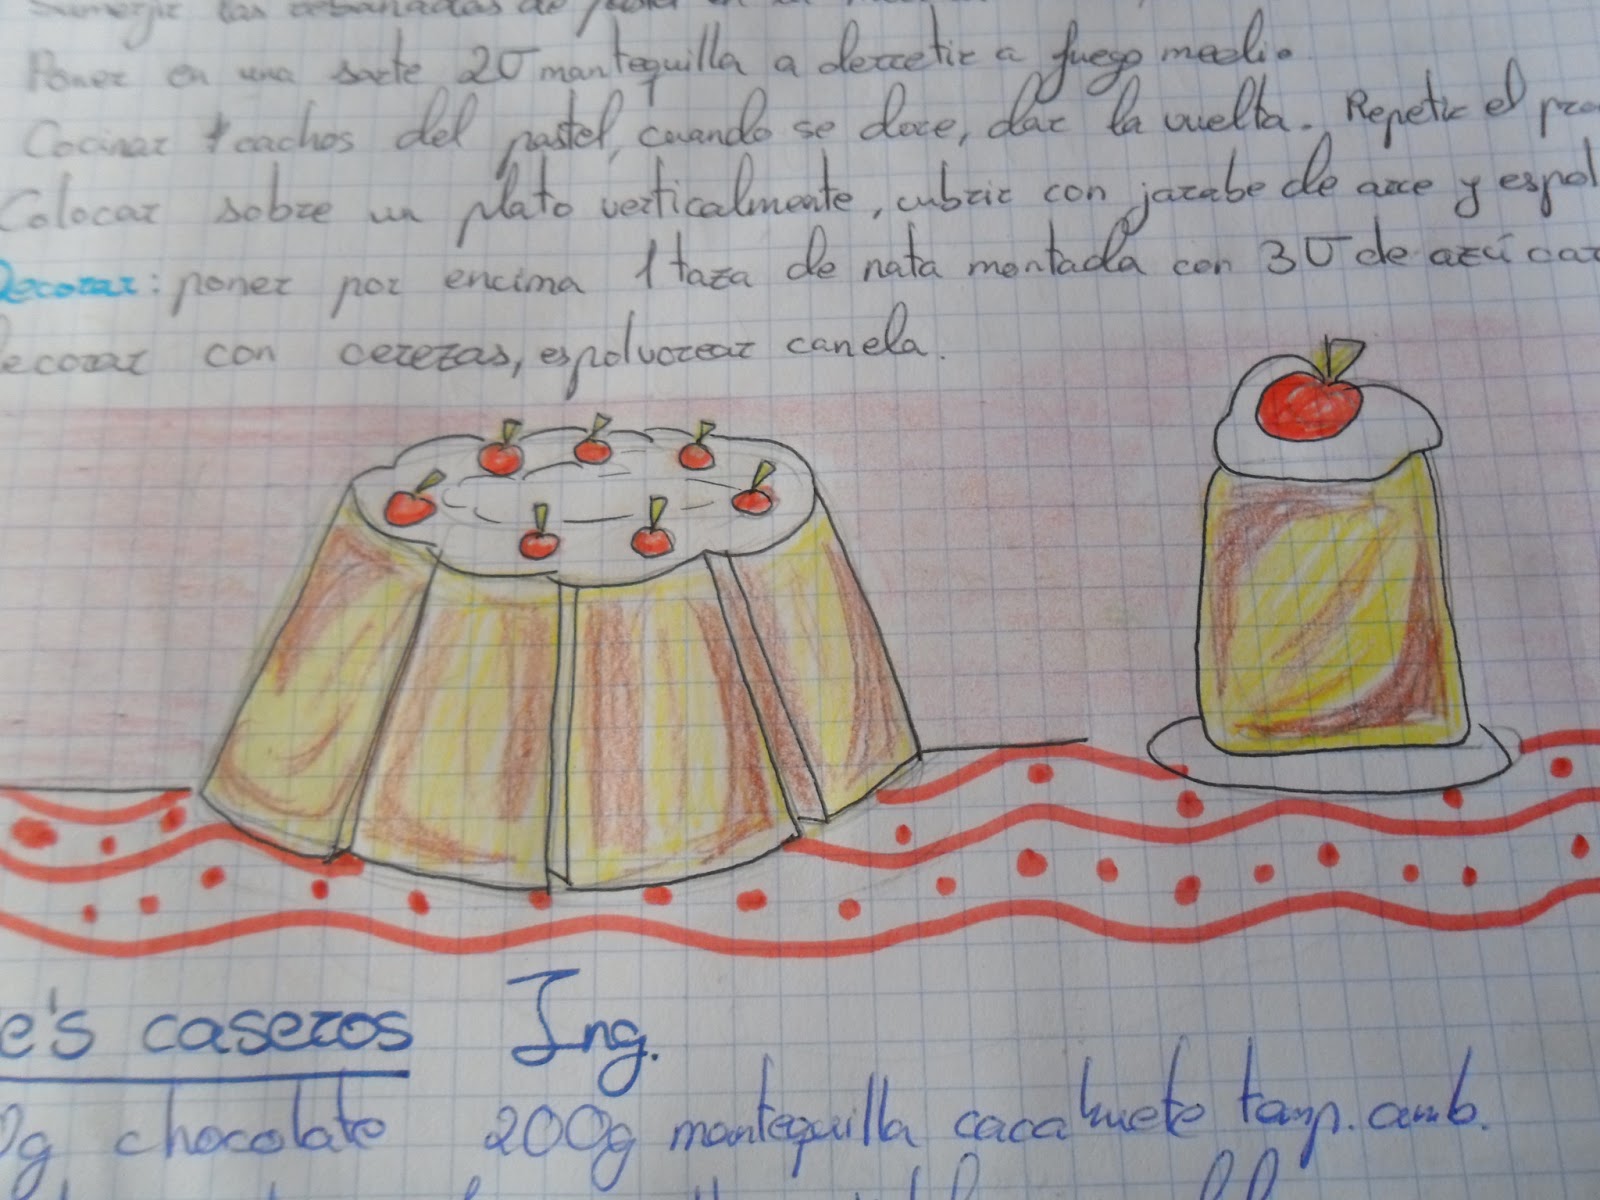 Sumergir las rebanadas de pastel en la
Poner en una sarte 2U mantequilla a derretir a fuego medio
Cocinar trachos del pastel, cuando se dore, dar la vuelta. Repetir el pro
Colocar sobre un plato verticalmente, cubrir con jarabe de arce y espol
Decorar: poner por encima 1 taza de nata montada con 3U de azúcar
decorar con cerezas, espolvorear canela.
e's caseros Ing.
0g chocolate 200g mantequilla cacahuete temp. amb.